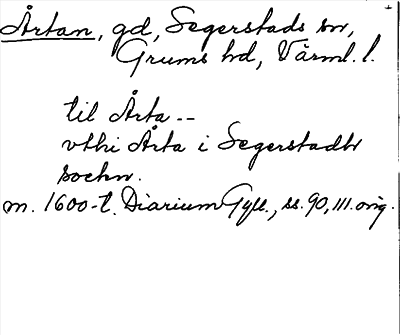 Årtan, gd, Segerstads sn,
Grums hd, Värml. l.
til Årta --
vthi Årta i Segerstadh
sochn.
m. 1600-t. Diarium Gyll., ss. 90, 111. orig.